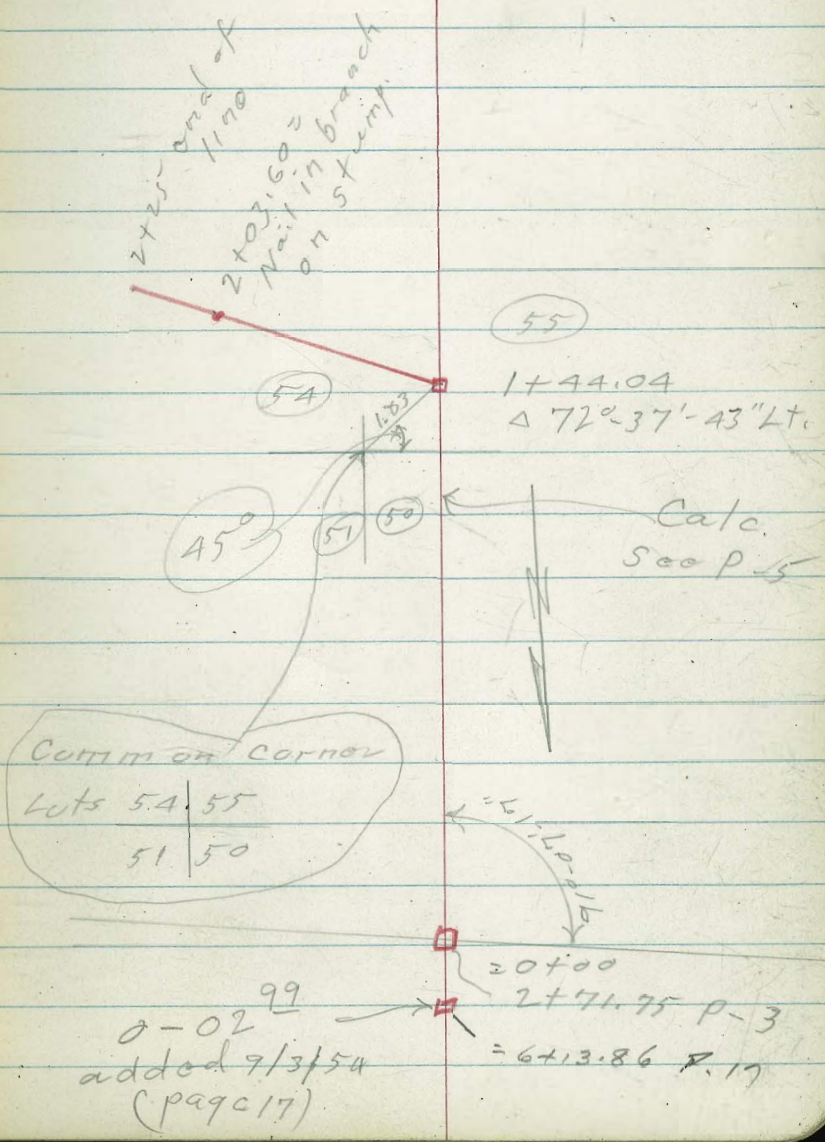 2+25 end of
line
2+03.60 =
Nail in branch
on stump.
55
54
1+44.04
Δ 72°-37'-43" Lt.
1.83
45°
51
50
Calc
See P-5
Common Corner
Lots 54 | 55
51 | 50
= 0+00
2+71.75 P-3
0-02 99
added 9/3/54
(page 17)
= 6+13.86 P. 17